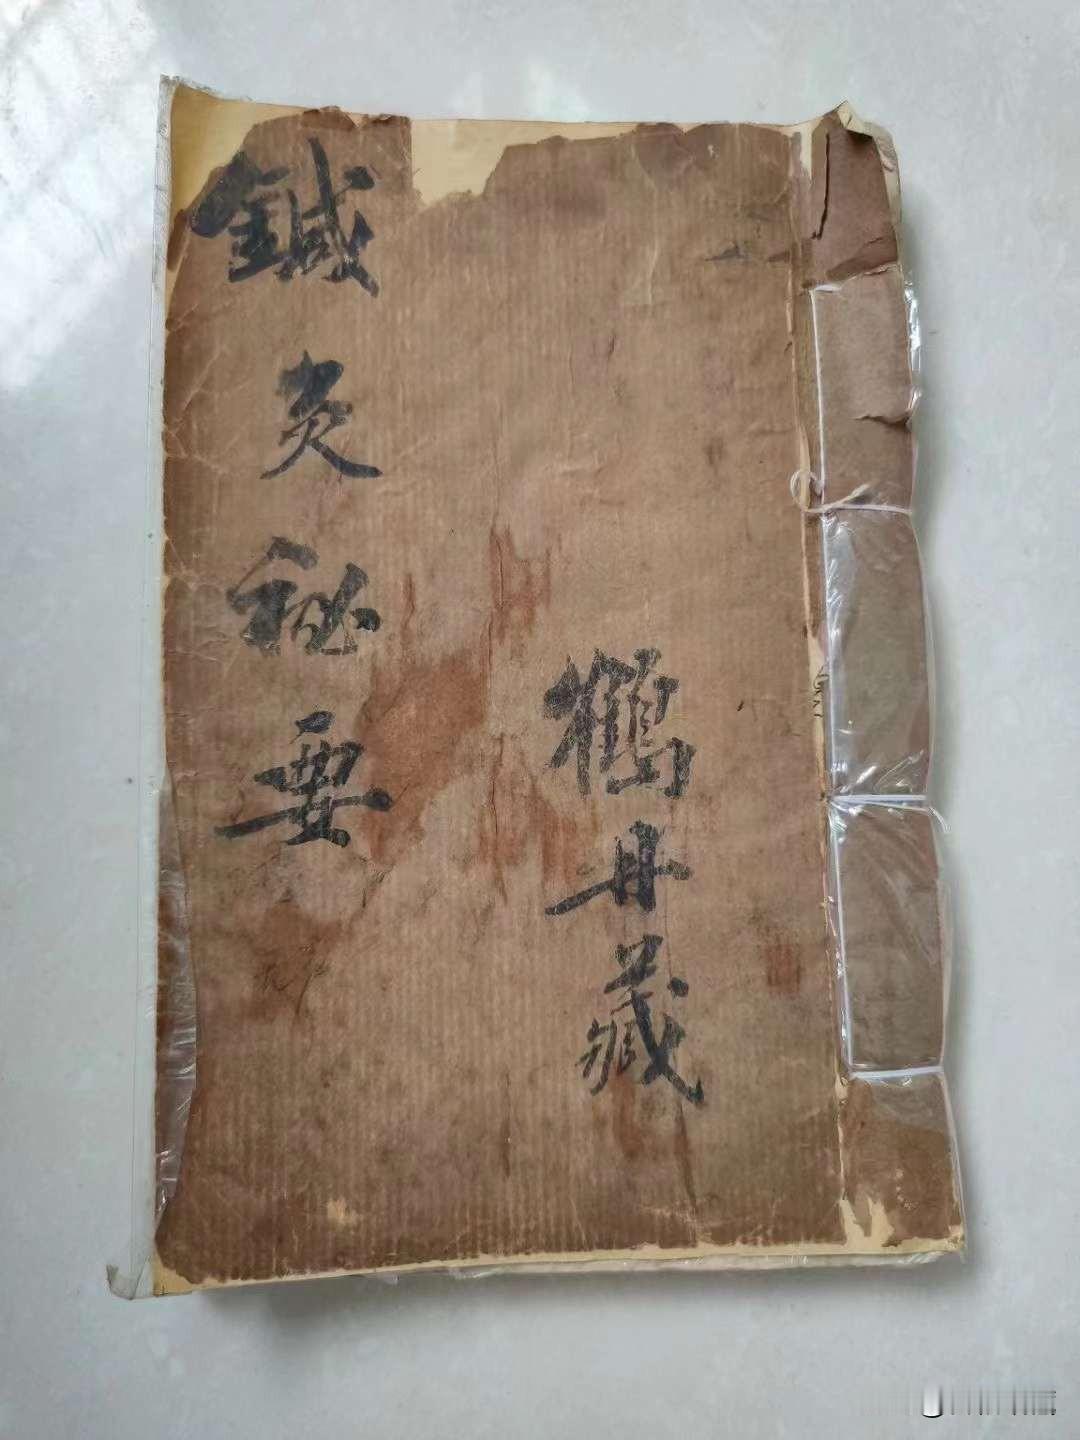 鶴丹藏
鍼灸秘要